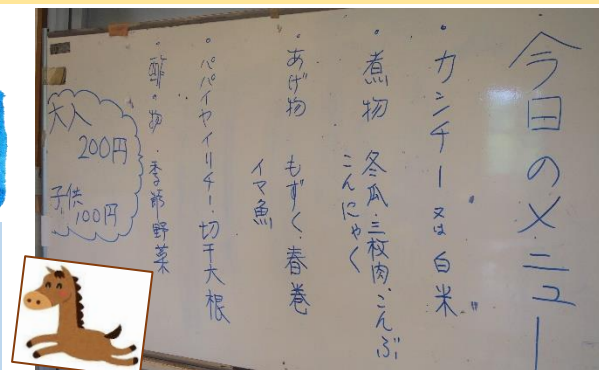 今日のメニュー
・カンチー又は白米
・煮物 冬瓜、三枚肉、こんぶ
こんにゃく
・あげ物 もずく、春巻
イマ魚
・パパイヤイリチー・切干大根
・酢・物・季節野菜
大人
200円
子供
100円